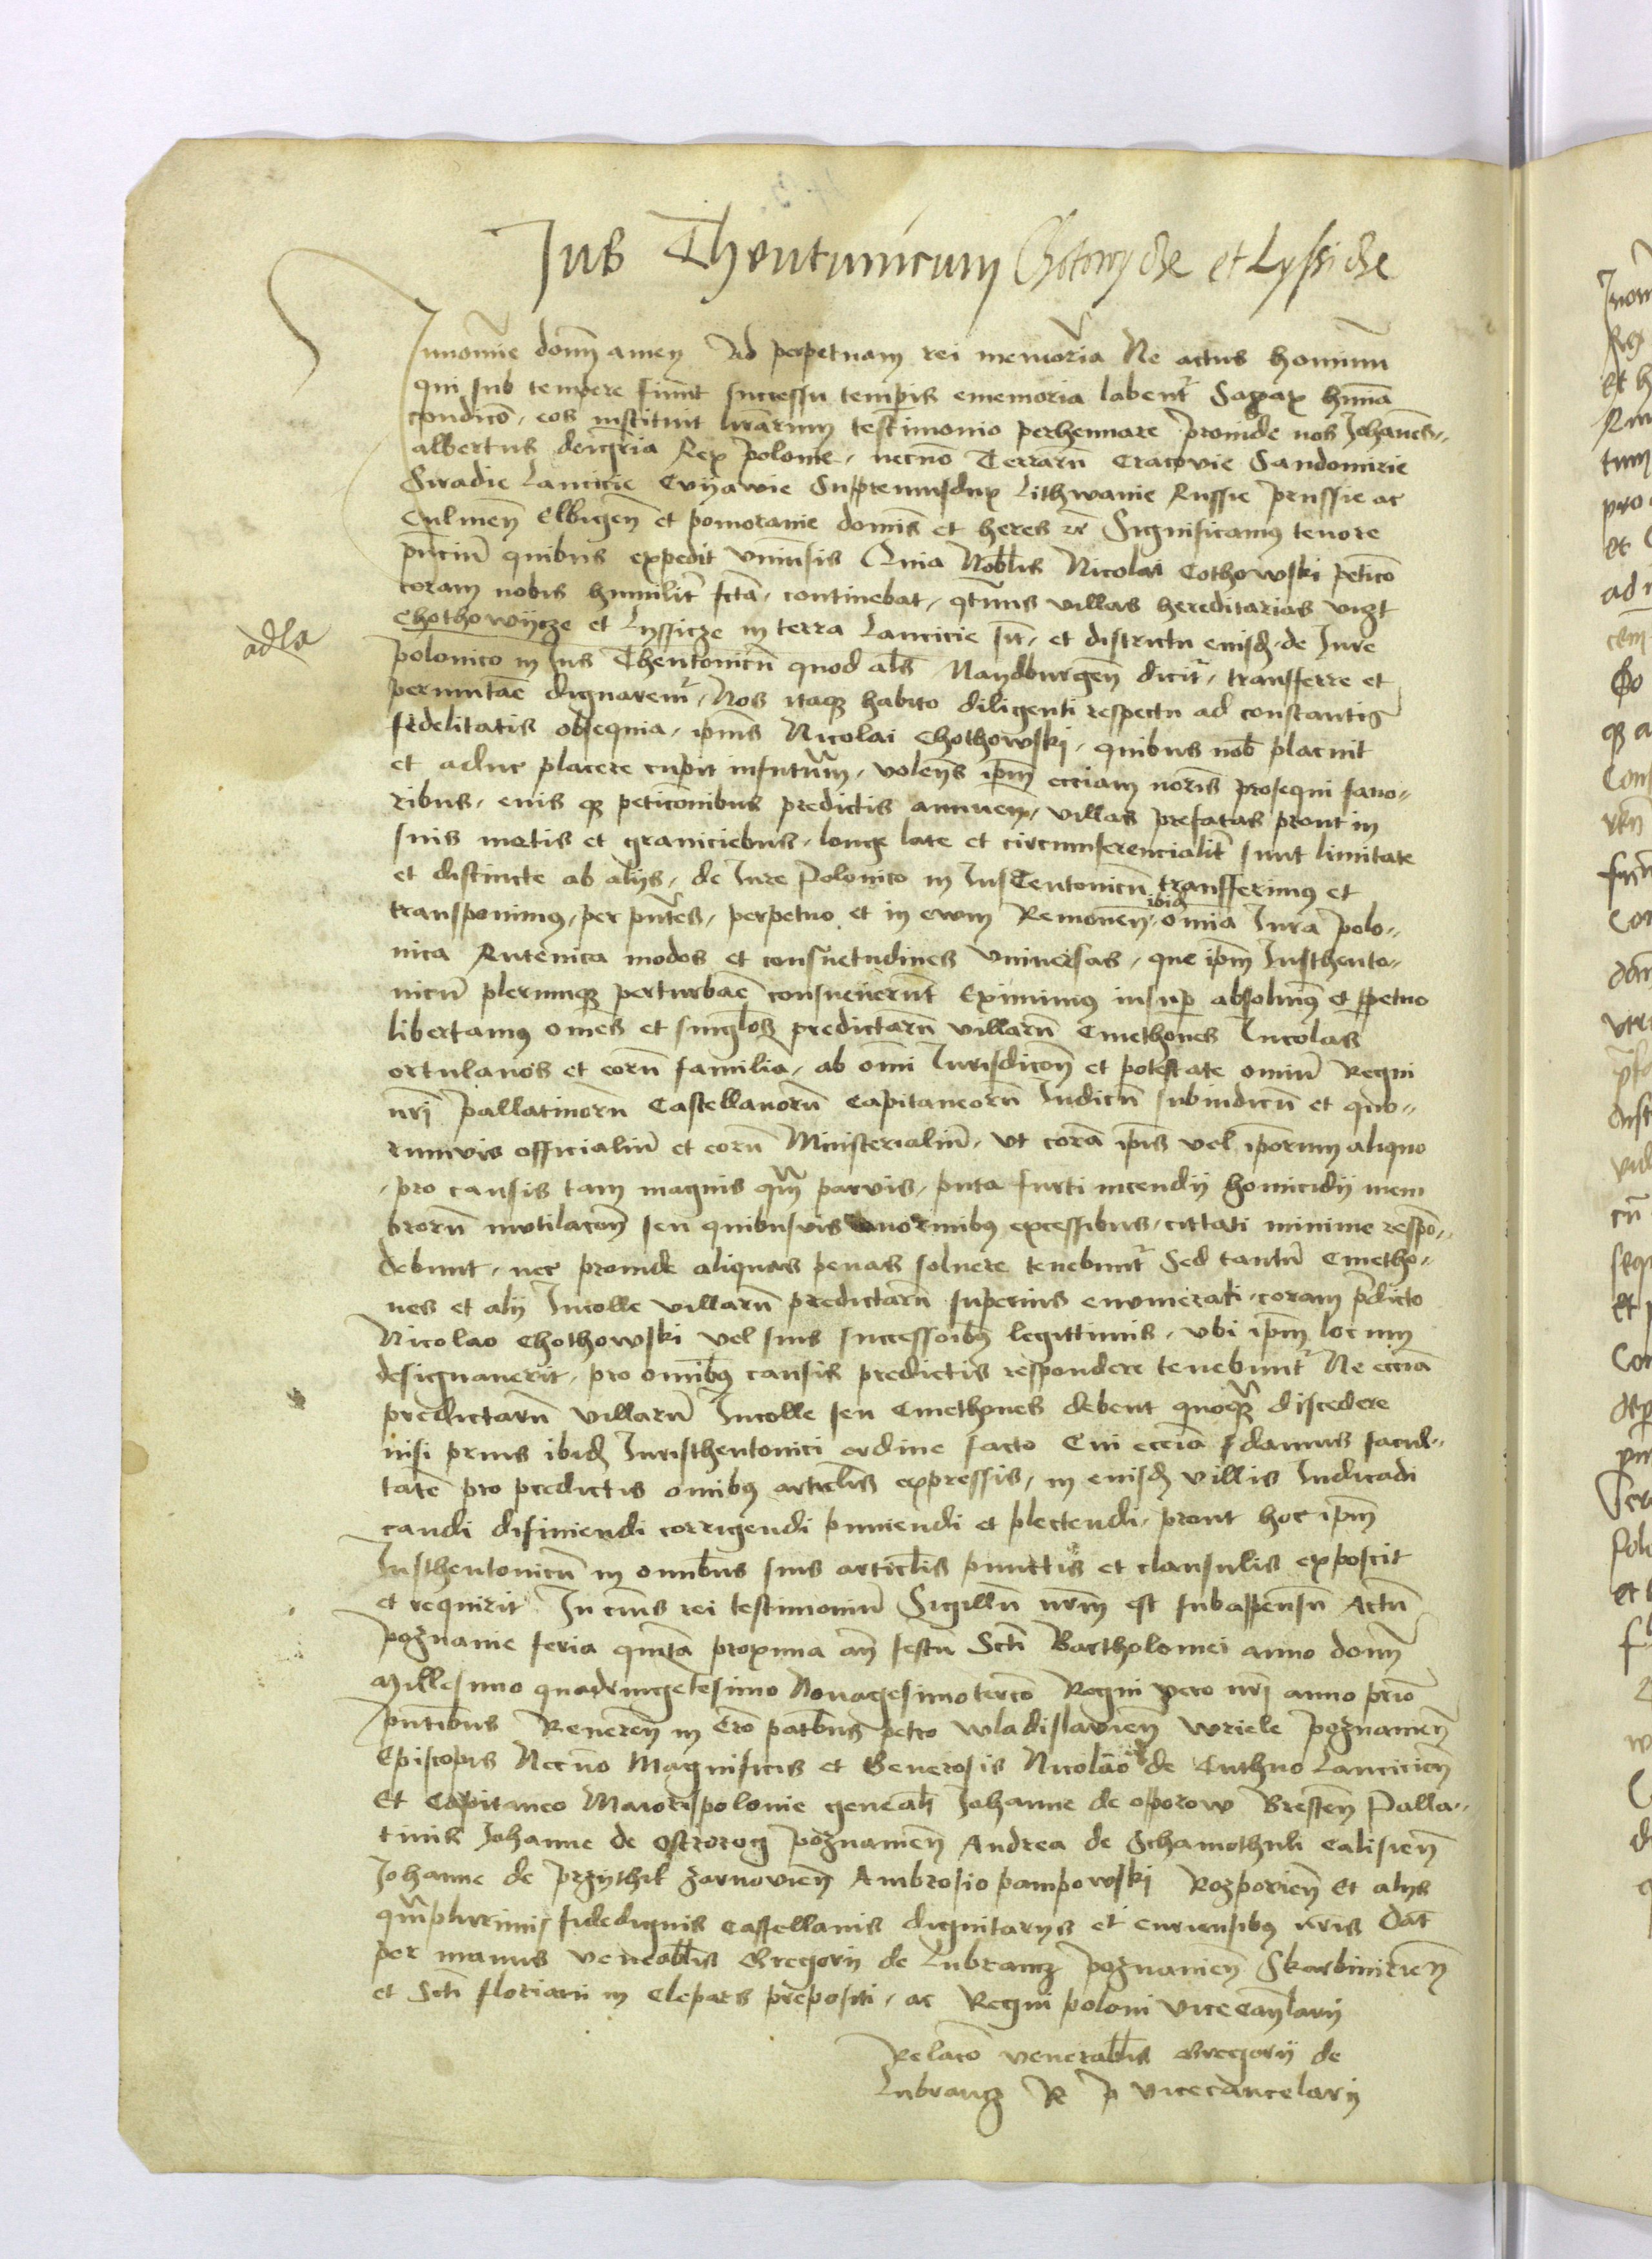 Jus Theutunicum Chotowycze et Lyssicze
Innomīe domī amen Ad perpetuam rei memoria Ne actus hominum
qui sub tempore fiunt successu temporis ememoria labent Sagax humā
condicō, eos instituit lrārum testimonio perhennare Proinde nos Johannes
albertus deigrīa Rex Polonie, necnō Terrarū Cracovie Sandomirie
Siradie Lancicie Cuyavie Supremusdux Lithwanie Russie Prussie ac
Culmeñ Elbigeñ et Pomoranie dominꝰ et heres Significamꝰ tenore
pnciū quibus expedit vniuersis Quia Nobilis Nicolai Cothowski peticō
coram nobis humilit fctā, continebat, qtenus villas hereditarias vizt
Chothowycze et Lyssicze in terra Lancicie sū, et districtu euisd, de Jure
adla
polonico in Jus Theutonicū quod als Maydburgeñ dicit, transferre et
permutāe dignaremr, Nos itaq habito diligenti respectu ad constantis
fidelitatis obsequia, ipius Nicolai Chothowski, quibus nob placuit
et aduc placere cupit infuturum, volens ipm ecciam noris prosequi fauo-
ribus, euis q peticonibus predictis annuen, villas prefatas prout in
suis metis et graniciebus, longe late et circumferencialit sunt limitate
et distincte ab alijs, de Jure Polonico in JusTeutonicū transferimus et
transponimus, per pntes, perpetuo et in ewm Remouen, ibid omia Jura Polo-
nica Rutenica modos et consuetudines vniuersas, que ipm Justheuto-
nicū plerumq perturbāe consueuerunt Eximimꝰ insup absoluimꝰ et ppetuo
libertamꝰ omes et singlos predictarū villarū Cmethones Incolas
ortulanos et eorū familia, ab omi Jurisdicoñ et potestate omiū Regni
nri Pallatinorū Castellanorū Capitaneorū Judicū subiudicū et quo-
rumvis officialiū et eorū Ministerialiū, vt corā ipis vel ipsorum aliquo
pro causis tam magnis qm parvis, puta furti incendij homicidij mem
brorū mutilacoñ seu quibusvis enormibꝰ excessibus, cittati minime respō-
debunt, nec proinde aliquas penas soluere tenebunt Sed tantū Cmetho-
nes et alij Incolle villarū predictarū superius enumerati, coram pdicto
Nicolao Chothowski vel suis successoribꝰ legittimis, vbi ipm locum
designauerit, pro omibꝰ causis predictis respondere tenebunt Ne ecciā
predictarū villarū Incolle seu Cmethones debent quoq discedere
nisi prius ibid Juristheutonici ordine facto Cui ecciā damus facul-
tatē pro predictis omibꝰ articlis expressis, in euisd villis Judicadi
candi difiniendi corrigendi puniendi et plectendi, prout hoc ipm
Justheutonicū in omibus suis articlis punctis et clausulis exposcit
et requirit In cuius rei testimoniū Sigillū nrm est subappensū Actū
Poznanie feria quinta proxima añ festū Scti Bartholomei anno domi
Millesimo quadringetesimo Nonagesimotercō Regni vero nri anno prio
pntibus Reuereñ in Cro patbus Petro Wladislavieñ Vriele Poznanieñ
Episcopis Necno Magnificis et Generosis Nicolao de Cuthno Lancicieñ
Et Capitaneo Maioris polonie genealī Johanne de Oporow Bresteñ Palla-
tinis Johanne de Ostrorog Poznanieñ Andrea de Schamothuli Calisieñ
Johanne de Przythik Zarnovieñ Ambrosio Pampowski Rozperieñ Et alijs
qmplurimis fidedignis Castellanis dignitarijs et curiensibꝰ nris Dat
per manus venerablis Gregorij de Lubrancz Poznanieñ Skarbimirieñ
et Scti Floriani in Cleparz prepositi, ac Regni Poloni Vicecancellarij
Relacō venerablis Gregorij de
Lubrancz R P vicecancelarij